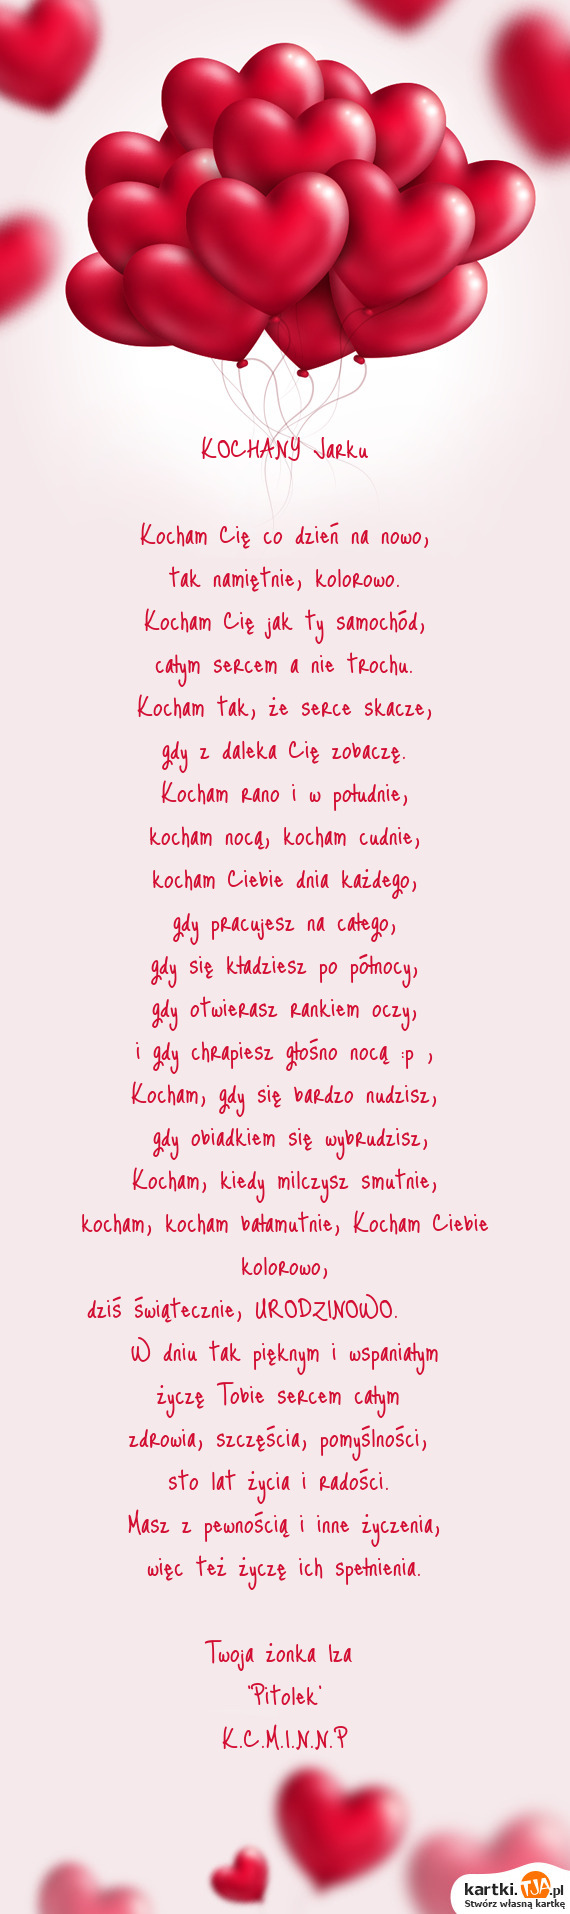 KOCHANY Jarku
Kocham Cię co dzień na nowo,
tak namiętnie, kolorowo.
Kocham Cię jak ty samochód,
całym sercem a nie trochu.
Kocham tak, że serce skacze,
gdy z daleka Cię zobaczę.
Kocham rano i w południe,
kocham nocą, kocham cudnie,
kocham Ciebie dnia każdego,
gdy pracujesz na całego,
gdy się kładziesz po północy,
gdy otwierasz rankiem oczy,
i gdy chrapiesz głośno nocą :p ,
Kocham, gdy się bardzo nudzisz,
gdy obiadkiem się wybrudzisz,
Kocham, kiedy milczysz smutnie,
kocham, kocham bałamutnie, Kocham Ciebie
kolorowo,
dziś świątecznie, URODZINOWO.
W dniu tak pięknym i wspaniałym
życzę Tobie sercem całym
zdrowia, szczęścia, pomyślności,
sto lat życia i radości.
Masz z pewnością i inne życzenia,
więc też życzę ich spełnienia.
Twoja żonka Iza
"Pitolek"
K.C.M.I.N.N.P
kartki.TJA.pl
Stwórz własną kartkę